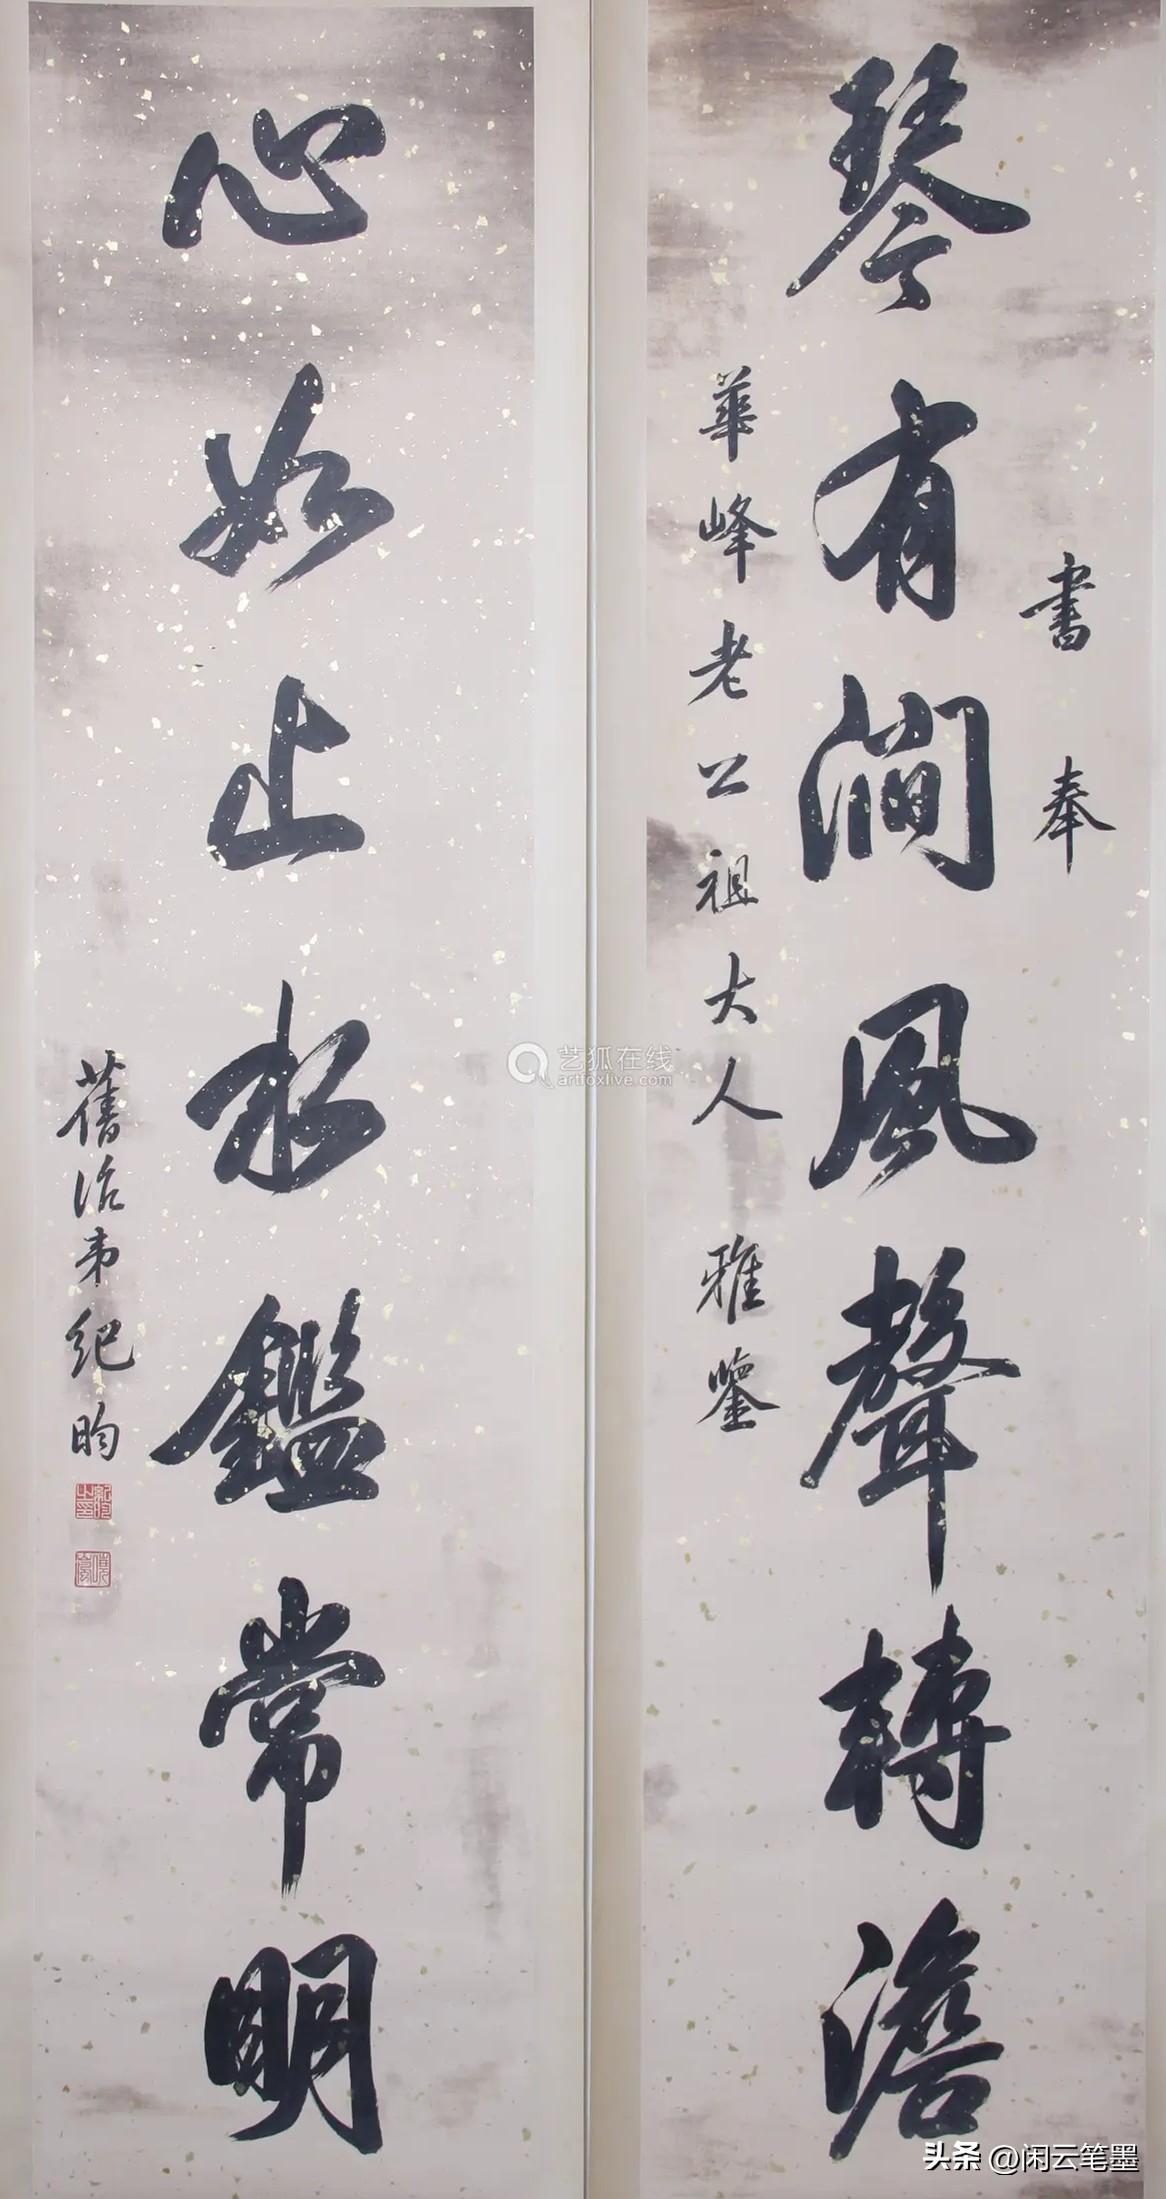 書奉
琴有澗風聲轉澹
華峰老公祖大人雅鑒
心如止水鑑常明
舊治弟紀昀
紀昀之印
艺狐在线
artfoxlive.com
头条 @闲云笔墨